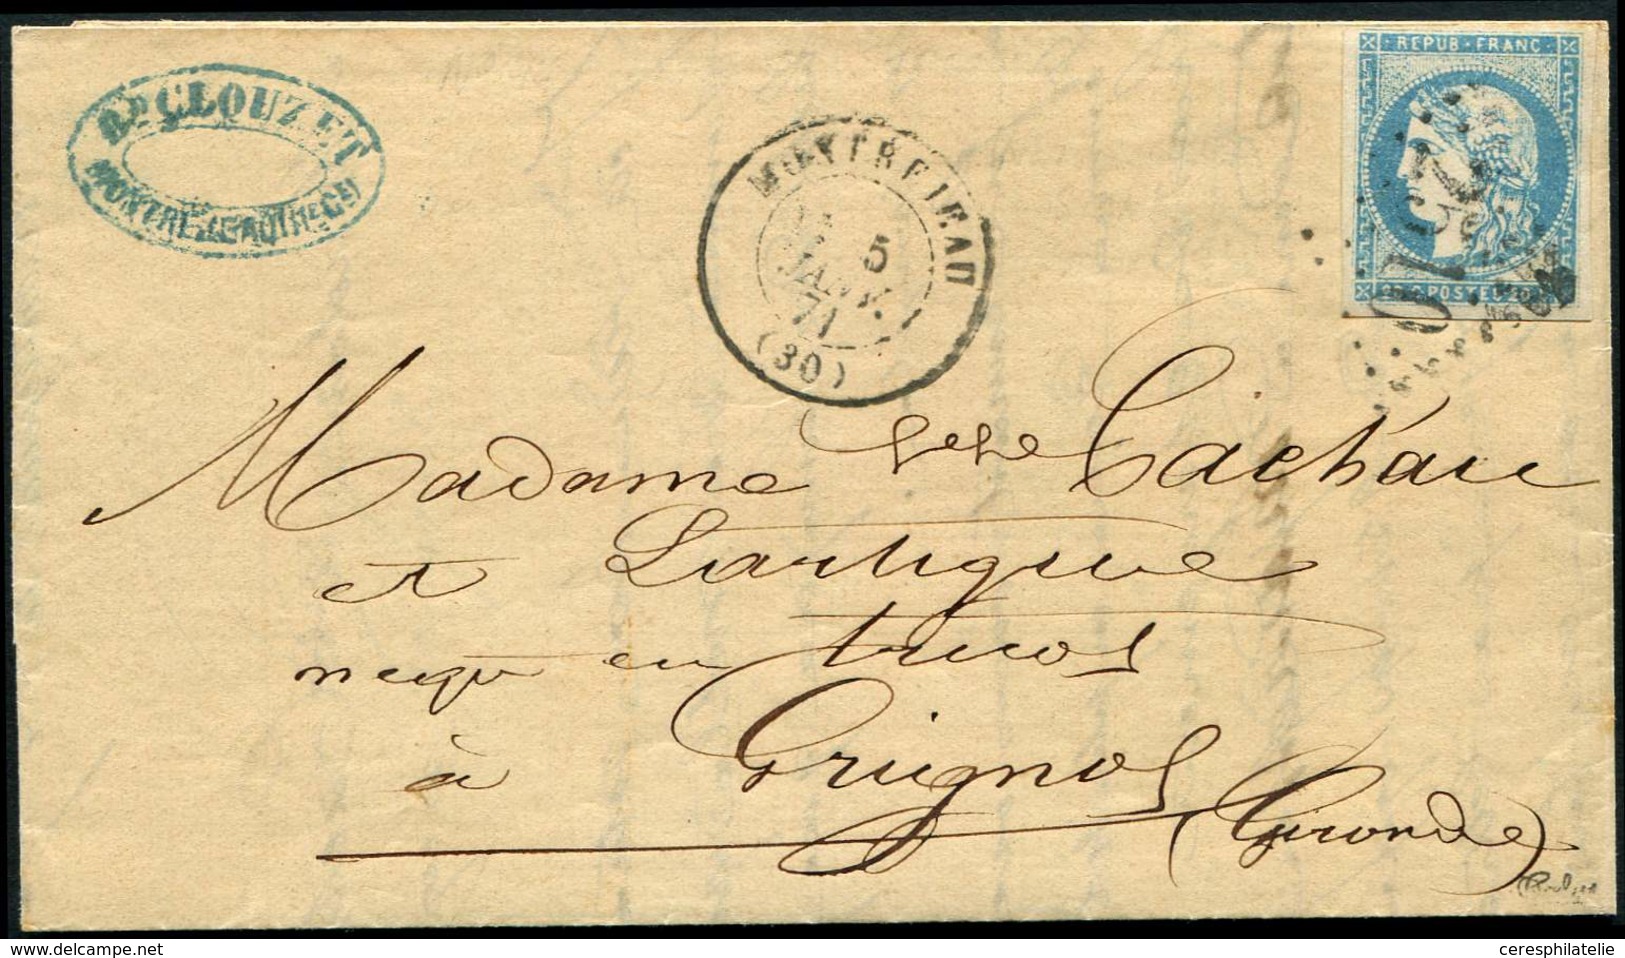 Bd CLOUZET
MONTREJEAU (Hte Gne)
MONTREJEAU
5
JANV.
71
(30)
REPUB · FRANC
20 C POSTES 20
Madame Cachau
et Lartigue
negts en tricots
à Grignols
(Gironde)
ceresphilatelie